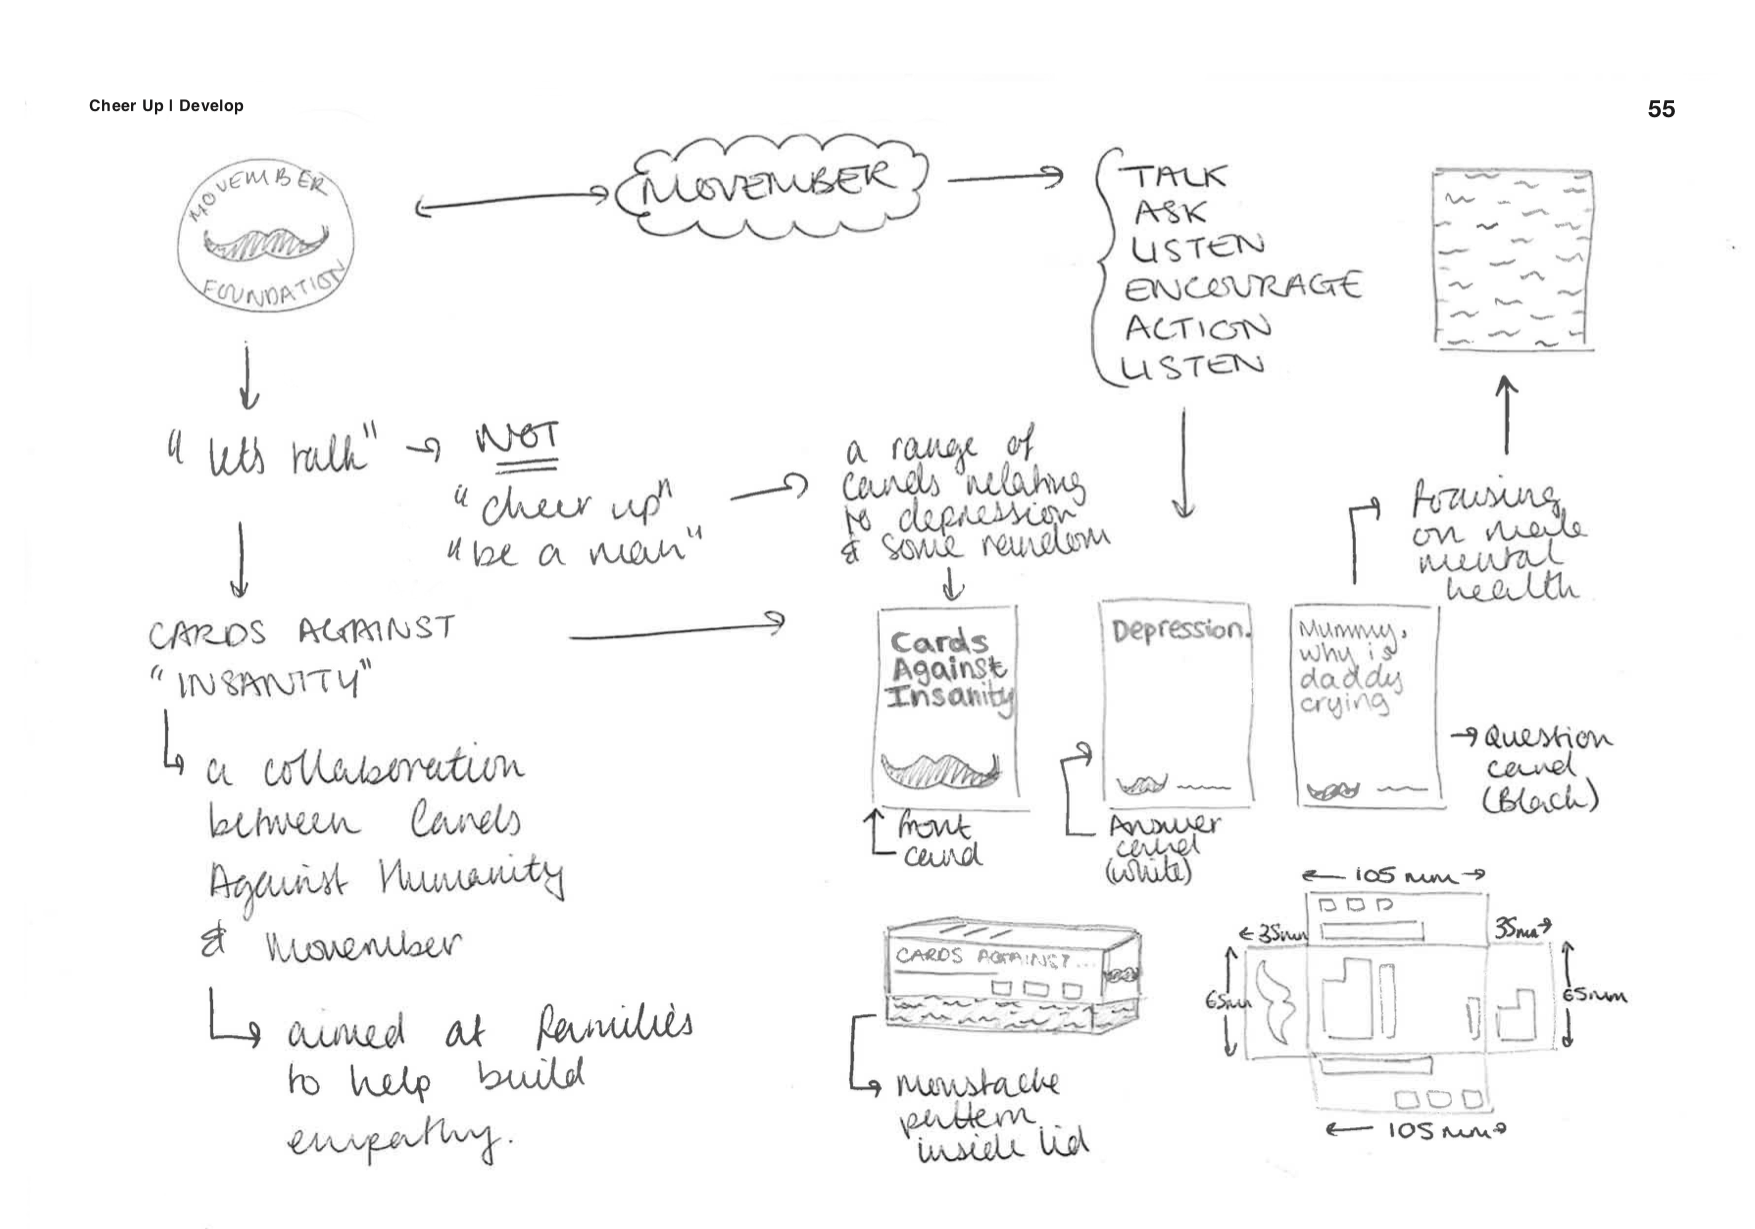 Cheer Up | Develop
55
MOVEMBER
FOUNDATION
MOVEMBER
TALK
ASK
LISTEN
ENCOURAGE
ACTION
LISTEN
"lets talk"
NOT
"cheer up"
"be a man"
a range of
cards relating
to depression
& some random
focusing
on male
mental
health
CARDS AGAINST
"INSANITY"
a collaboration
between Cards
Against Humanity
& Movember
aimed at families
to help build
empathy.
Cards
Against
Insanity
front
card
Depression.
Answer
card
(white)
Mummy,
why is
daddy
crying
Question
card
(Black)
CARDS AGAINST...
moustache
pattern
inside lid
105mm
35mm
35mm
65mm
65mm
105mm